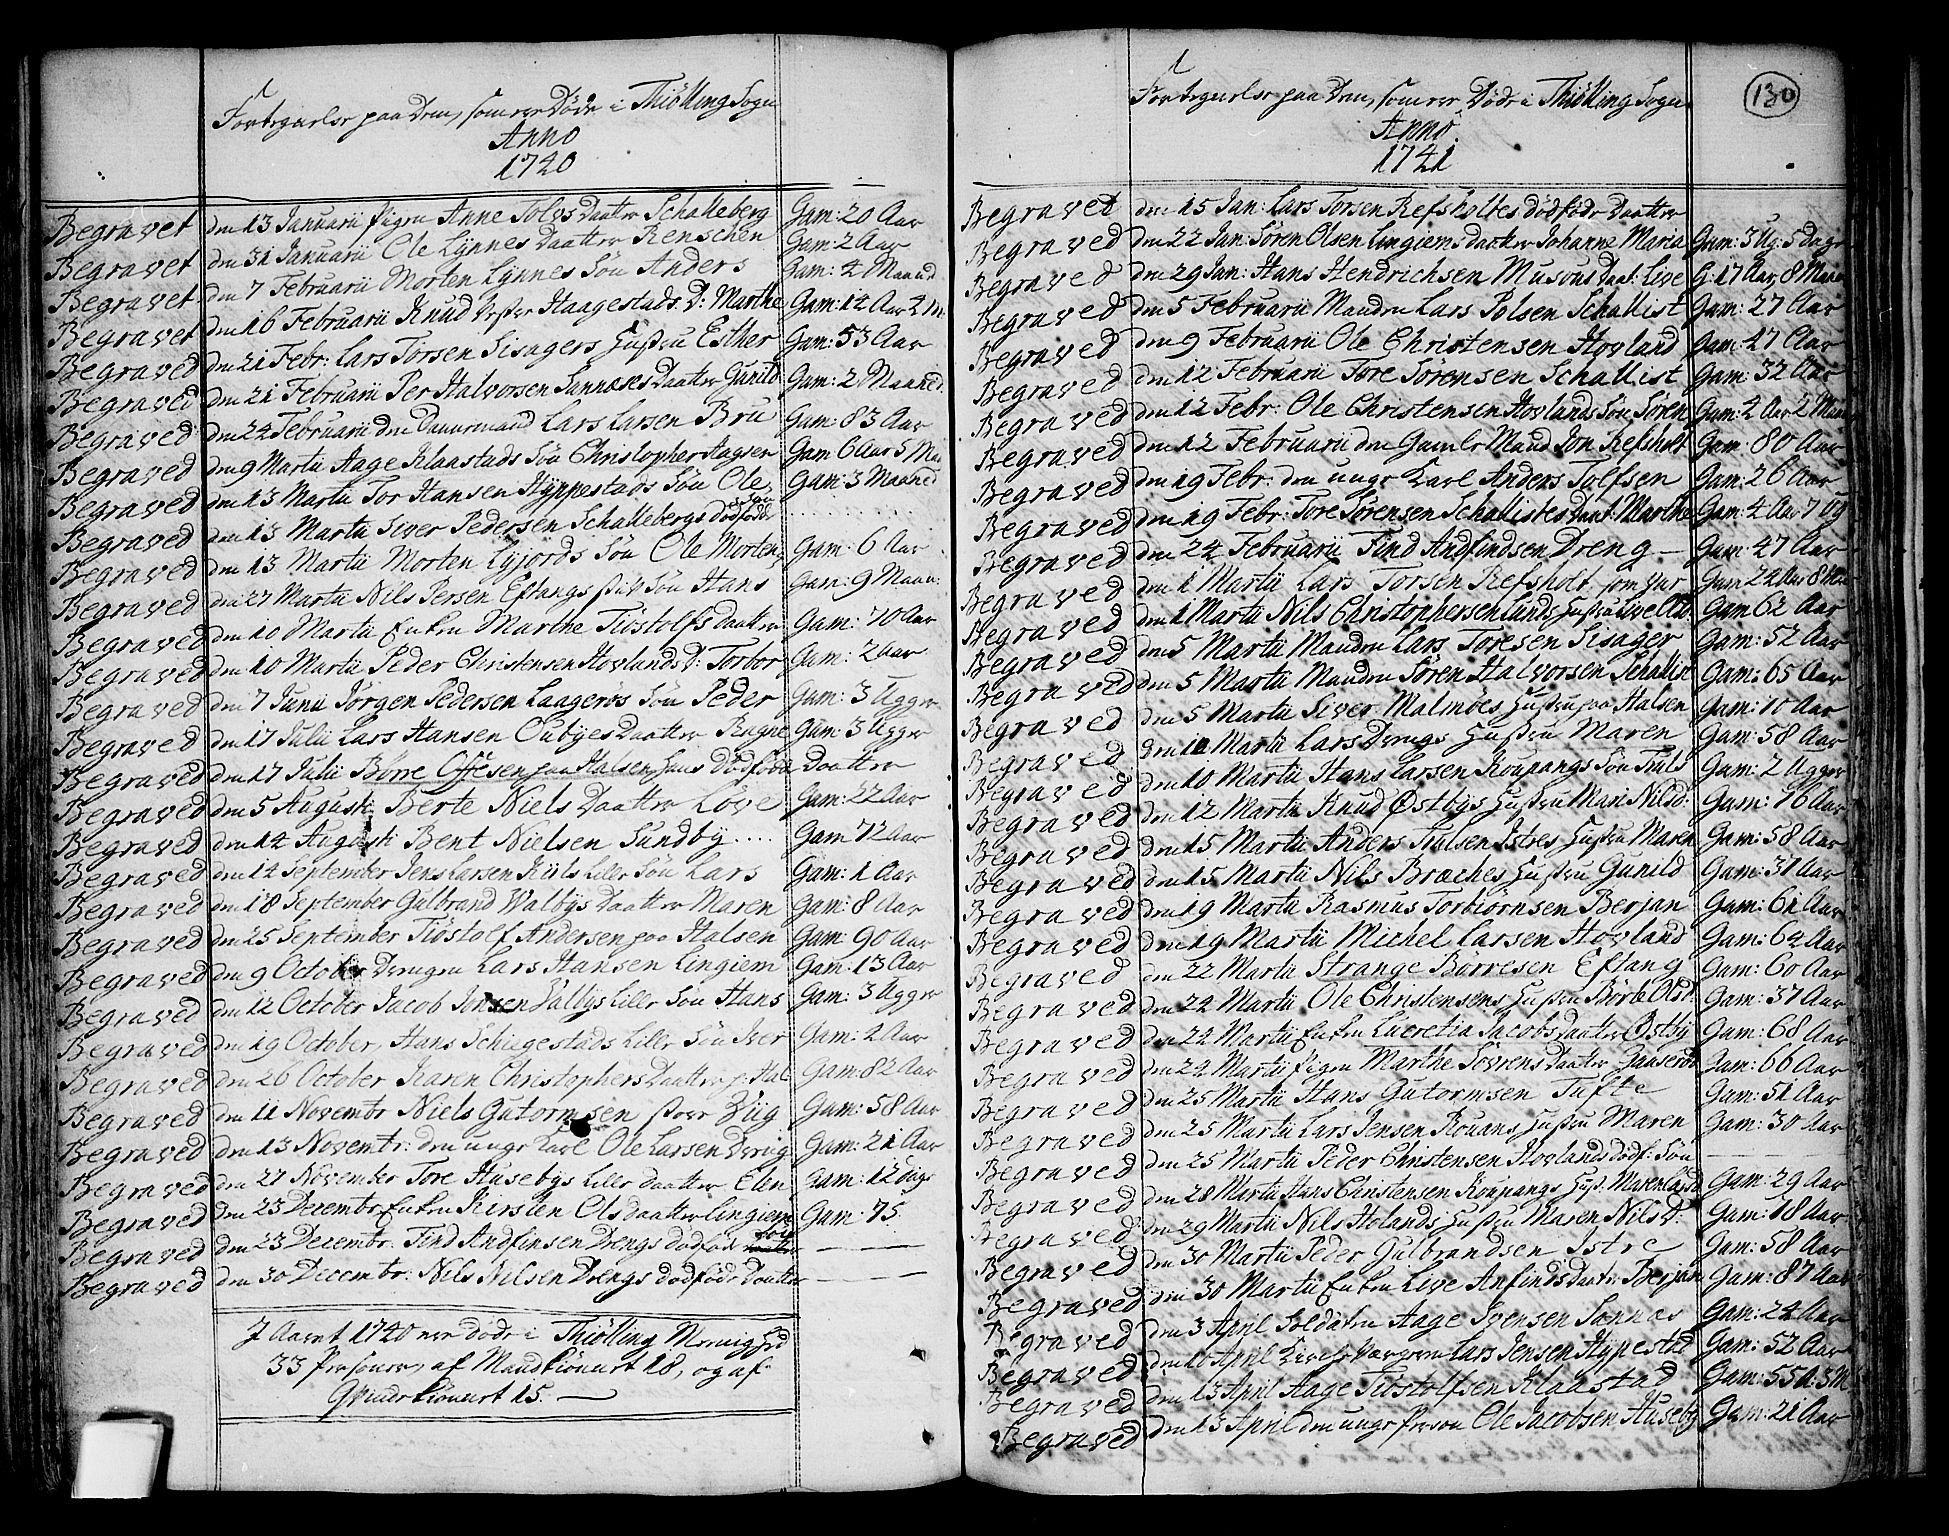 Fortegnelse paa Dem, som ere Døde i Thiölling Sogn
Anno
1740
Begravet den 13 Januarii Pigen Anne Tolvs Daatter Schalleberg Gam: 20 Aar
Begravet den 31 Januarii Ole Lynnes Daatter Renschen Gam: 2 Aar
Begravet den 7 Februarii Morten Lynnes Søn Anders Gam: 4 Maaned
Begravet den 16 Februarii Knud Haagestads D: Marthe Gam: 14 Aar 2 M.
Begraved den 21 Febr: Lars Torsen Sisagers Hustru Esther Gam: 53 Aar
Begraved den 21 Februarii Per Halvorsen Sannæses Daatter Gunild Gam: 2 Maaned
Begraved den 24 Februarii den Dannemand Lars Larsen Bru Gam: 83 Aar
Begraved den 9 Martii Aage Klaastads Søn Christopher Aagsen Gam 6 Aar 5 M
Begraved den 13 Martii Tor Hansen Hyppestads Søn Ole Gam: 3 Maaned
Begraved den 13 Martii Siver Pedersen Schallebergs dødfødde Søn
Begraved den 13 Martii Morten Lyjords Søn Ole Morten, Gam: 6 Aar
Begraved den 27 Martii Nils Persen Eftangs Søn Hans Gam: 9 Maan:
Begraved den 10 Martii Enken Marthe Tiøstolfs Daatter Gam: 70 Aar
Begraved den 10 Martii Peder Christensen Hovlands D: Torbor Gam: 2 Aar
Begraved den 7 Junii Jörgen Pedersen Laagerøs Søn Peder Gam: 3 Uger
Begraved den 17 Julii Lars Hansen Oubyes Daatter Ragne Gam: 3 Uger
Begraved den 17 Julii Børre Offesen paa Halsen hans dødfødde Daatter
Begraved den 5 Augusti Berte Niels Daatter Løve Gam: 22 Aar
Begraved den 14 Augusti Bent Nielsen Sundby .... Gam 72 Aar
Begraved den 14 September Jens Larsen Kiils lille Søn Lars Gam: 1 Aar
Begraved den 18 September Gulbrand Walbys Daatter Maren Gam: 8 Aar
Begraved den 25 September Tiøstolf Andersen paa Halsen Gam: 90 Aar
Begraved den 9 October Drengen Lars Hansen Lingiem Gam: 13 Aar
Begraved den 12 October Jacob Jonsen Valbys lille Søn Hans Gam: 3 Uger
Begraved den 19 October, Hans Schiegestads lille Søn Iver Gam: 2 Aar
Begraved den 26 October Karen Christophers Daatter p. Hal Gam: 82 Aar
Begraved den 11 Novembr Niels Gutormsen store Viig Gam: 58 Aar
Begraved den 13 Novembr: den unge Karl Ole Larsen Dreng Gam: 21 Aar
Begraved den 27 November Tore Husebys lille Daatter Elen Gam: 12 Dage
Begraved den 23 Decembr Enken Kirsten Ols daatter Lingiem Gam: 75
Begraved den 23 Decembr: Find Andfinsen Drengs dødfødde Søn
Begraved den 30 Decembr: Nils Nilsen Drengs dødfødde Daatter
I Aaret 1740 ere døde i Thiölling Menighed
33 Personer, af Mandkiönnet 18, og af
Qvindekiönnet 15.
130
Fortegnelse paa Dem, som ere Døde i Thiölling Sogn
Anno
1741
Begravet den 15 Jan: Lars Torsen Refsholtes dødfødde Daatter
Begraved den 22 Jan: Søren Olsen Lingiems daatter Johanne Maria Gam: 3 Ug: 5 dage
Begraved den 29 Jan: Hans Hendrichsen Daat: Live G: 17 Aar 8 Maan
Begraved den 5 Februarii Manden Lars Polsen Schallist Gam: 27 Aar
Begraved den 9 Februarii Ole Christensen Hovland Gam: 47 Aar
Begraved den 12 Februarii Tore Sørensen Schallist Gam: 32 Aar
Begraved den 12 Febr: Ole Christensen Hovlands Søn Søren Gam: 4 Aar 2 Maan
Begraved den 12 Februarii den Gamle Mand Jon Refsholt Gam: 80 Aar
Begraved den 19 Febr: den unge Karl Anders Tolfsen Gam: 26 Aar
Begraved den 19 Febr: Tore Sørensen Schallistes Daat: Marthe Gam: 4 Aar 7 Ug
Begraved den 24 Februarii Find Andfindsen Dreng Gam: 47 Aar
Begraved den 1 Martii Lars Torsen Refsholt Gam
Begraved den 1 Martii Nils Christophersen Lunds Hustru Gam 62 Aar
Begraved den 5 Martii Manden Lars Toresen Sisager Gam: 52 Aar
Begraved den 5 Martii Manden Søren Halvorsen Schallist Gam: 65 Aar
Begraved den 5 Martii Siver Malmöes Hustru paa Halsen Gam: 70 Aar
Begraved den Martii Lars Drengs Hustru Maren Gam: 58 Aar
Begraved den 10 Martii Hans Larsen Koupangs Søn Truls Gam: 2 Uger
Begraved den 12 Martii Knud Østbys Hustru Mari Nilsd: Gam: 76 Aar
Begraved den 15 Martii Anders Trulsen Istres Hustru Maren Gam: 58 Aar
Begraved den 15 Martii Nils Braches Hustru Gunild Gam: 37 Aar
Begraved den 19 Martii Rasmus Torbiørnsen Berjan Gam: 61 Aar
Begraved den 19 Martii Michel Larsen Hovland Gam: 64 Aar
Begraved den 22 Martii Strange Børresen Eftang Gam: 60 Aar
Begraved den 24 Martii Ole Christensens Hustru Børte Olsd: Gam: 37 Aar
Begraved den 24 Martii Enken Lucretia Jacobs daatter Østby Gam: 68 Aar
Begraved den 24 Martii Pigen Marthe Sørens daatter Gaaserød Gam: 66 Aar
Begraved den 25 Martii Hans Gutormsen Tufte Gam: 51 Aar
Begraved den 25 Martii Lars Jensen Hustru Maren Gam: 30 Aar
Begraved den 25 Martii Peder Christensen Hovlands dødf: Søn
Begraved den 28 Martii Hans Christensen Koupangs Hust: Maren Gam: 29 Aar
Begraved den 29 Martii Nils Holands Hustru Maren Nils D: Gam: 18 Aar
Begraved den 30 Martii Peder Gulbrandsen Istre Gam: 58 Aar
Begraved den 30 Martii Enken Live Anfinds Daatr: Berjan Gam: 87 Aar
Begraved den 3 April Soldaten Aage Svensen Sannæs Gam: 24 Aar
Begraved den 10 April Kirche Værgeren Lars Jensen Hypestad Gam: 52 Aar
Begraved den 13 April Aage Tiøstolfsen Klaastad Gam: 55 A: 3 M
Begraved den 13 April den unge Person Ole Jacobsen Huseby Gam: 21 Aar